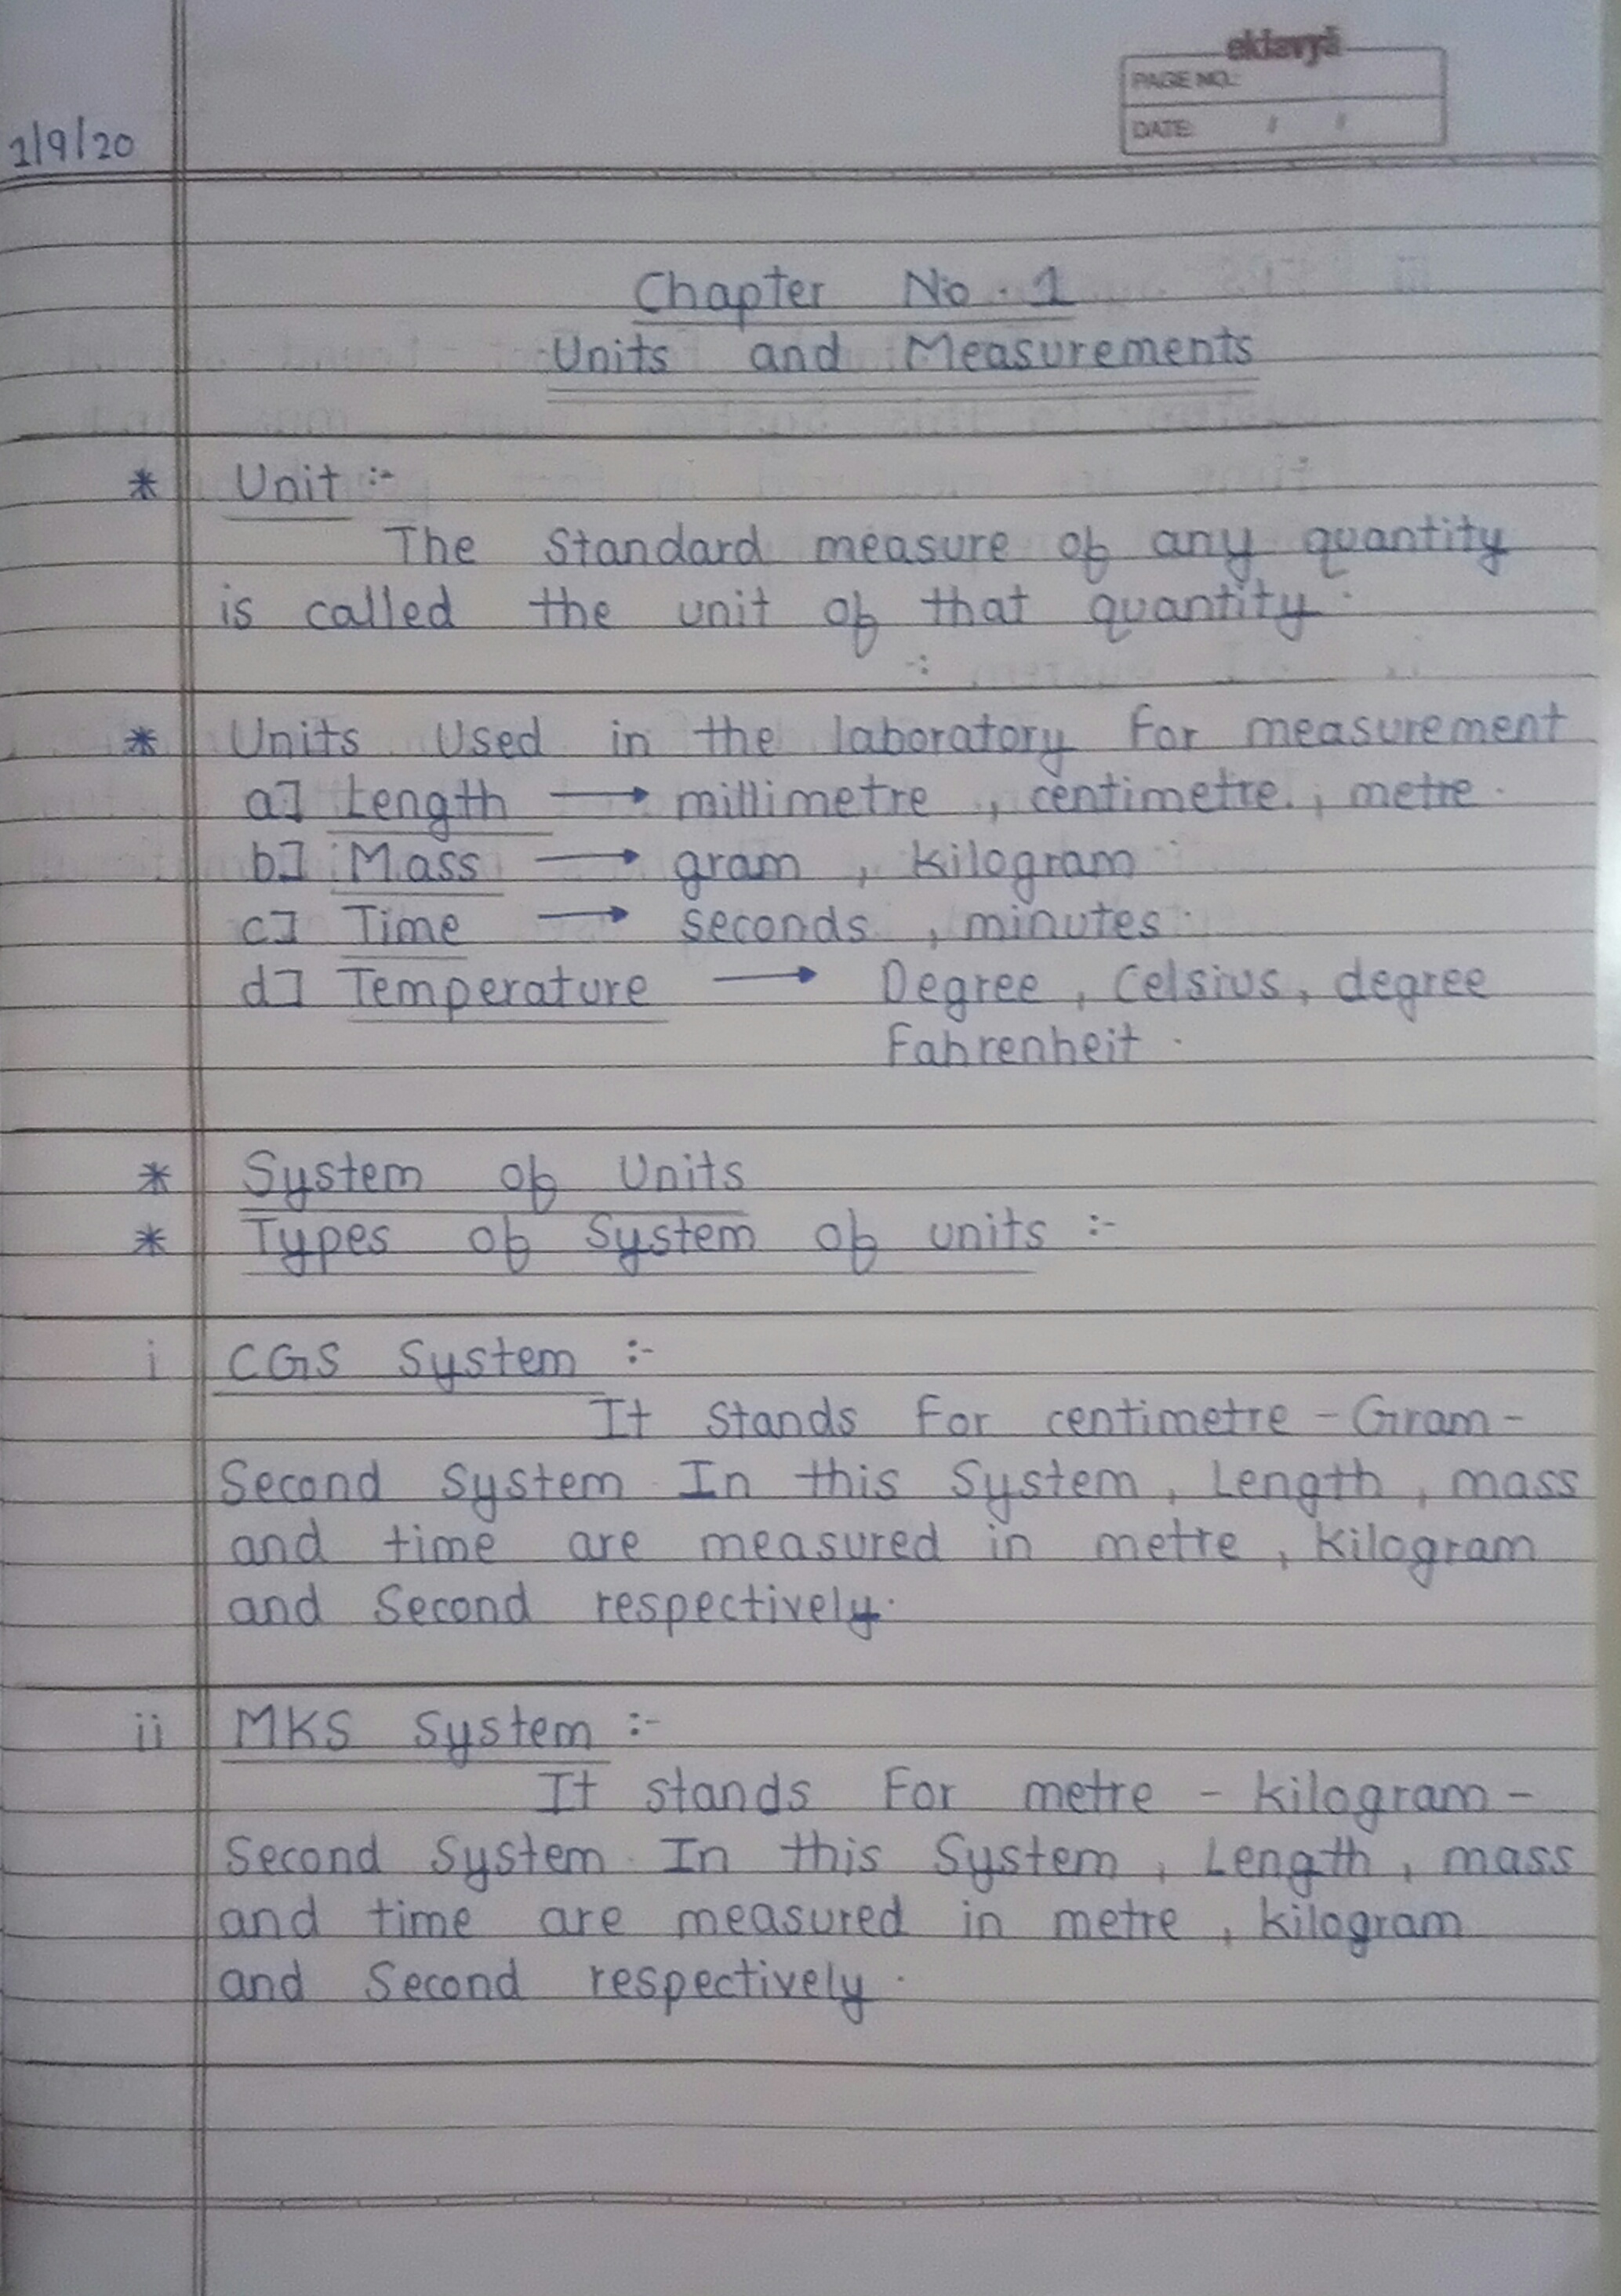 eklavya
PAGE NO.:
DATE: / /
1/9/20
Chapter No. 1
Units and Measurements
* Unit :-
The Standard measure of any quantity
is called the unit of that quantity.
* Units Used in the laboratory For measurement
a] Length → millimetre , centimetre , metre .
b] Mass → gram , kilogram
c] Time → seconds , minutes .
d] Temperature → Degree , Celsius , degree
Fahrenheit .
* System of Units
* Types of System of units :-
i CGS System :-
It Stands For centimetre - Gram -
Second System. In this System , Length , mass
and time are measured in metre , kilogram
and Second respectively.
ii MKS System :-
It stands For metre - kilogram -
Second System. In this System , Length , mass
and time are measured in metre , kilogram
and Second respectively .